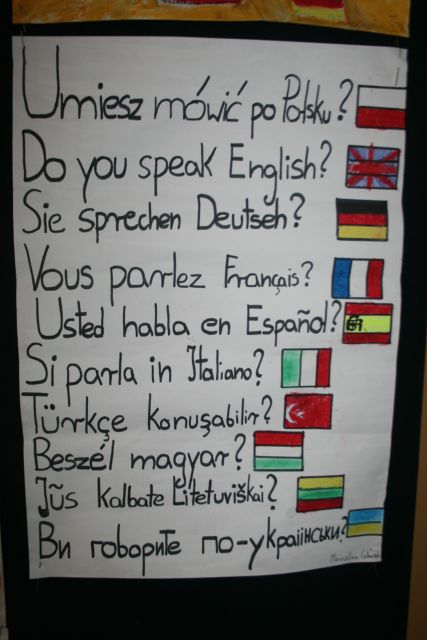 Umiesz mówić po Polsku?
Do you speak English?
Sie sprechen Deutseh?
Vous parrlez Français?
Usted habla en Español?
Si parla in Italiano?
Türkçe konuşabilir?
Beszél magyar?
Jũs kalbate Litetuviškai?
Ви говорите по-украіінськи?